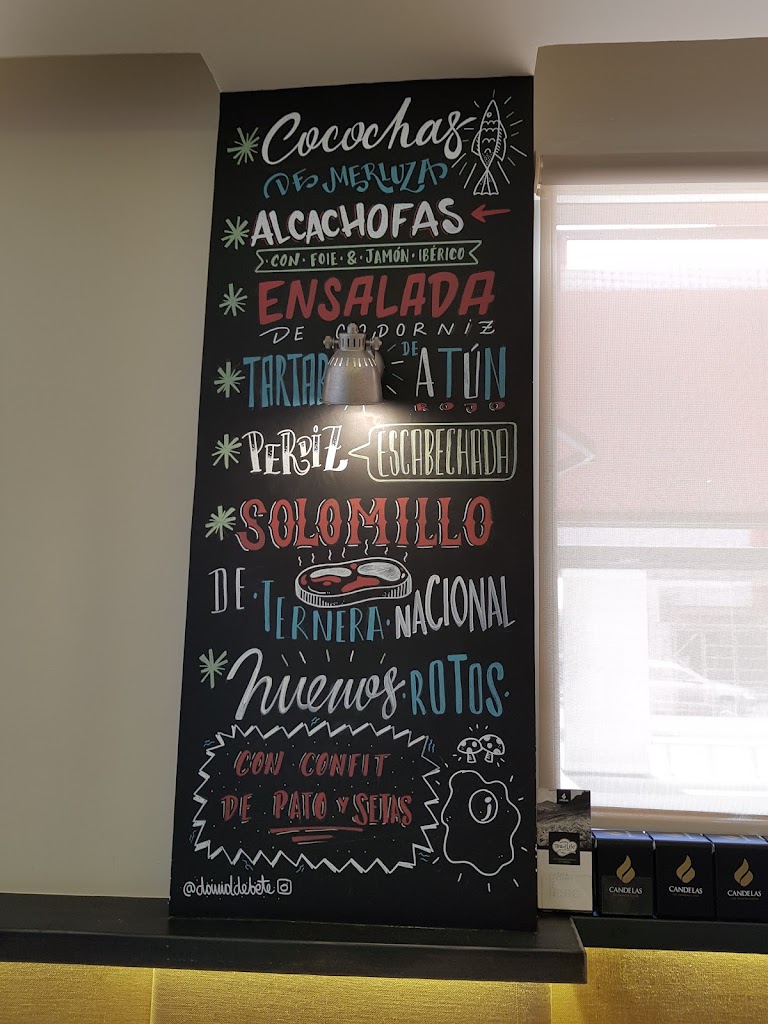 Cocochas
DE MERLUZA
ALCACHOFAS
CON FOIE & JAMÓN IBÉRICO
ENSALADA
DE CODORNIZ
TARTAR DE ATÚN
ROJO
PERDIZ ESCABECHADA
SOLOMILLO
DE TERNERA NACIONAL
huevos ROTOS
CON CONFIT
DE PATO Y SETAS
CANDELAS
CANDELAS
CANDELAS